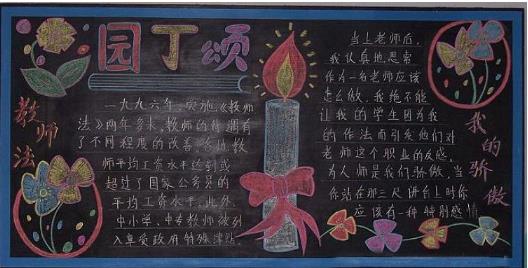 园丁颂
教师法
一九九六年,实施《教师
法》两年多来,教师的待遇有
了不同程度的改善,各地教
师平均工资水平达到或
超过了国家公务员的
平均工资水平。此外,
中小学、中专教师被列
入享受政府特殊津贴。
当上老师后,
我认真地思索
作为一名老师应该
怎么做,我绝不能
让我的学生因为我
的作法而引发他们对
老师这个职业的反感。
为人师是我们骄傲,当
你站在那三尺讲台上时你
应该有一种特别感情
我的骄傲